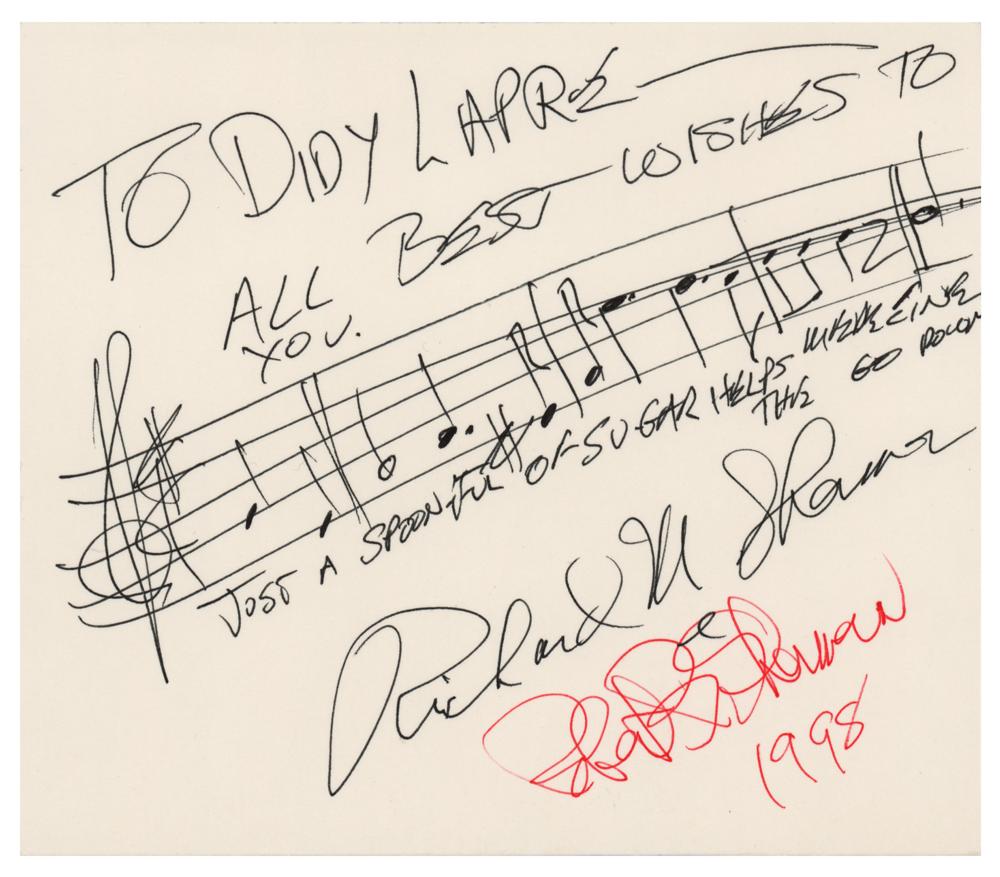 TO DIDY LAPRE
ALL BEST WISHES TO
YOU.
JUST A SPOONFUL OF SUGAR HELPS THE MEDECINE GO DOWN
Richard M Sherman
& Robt B Sherman
1998